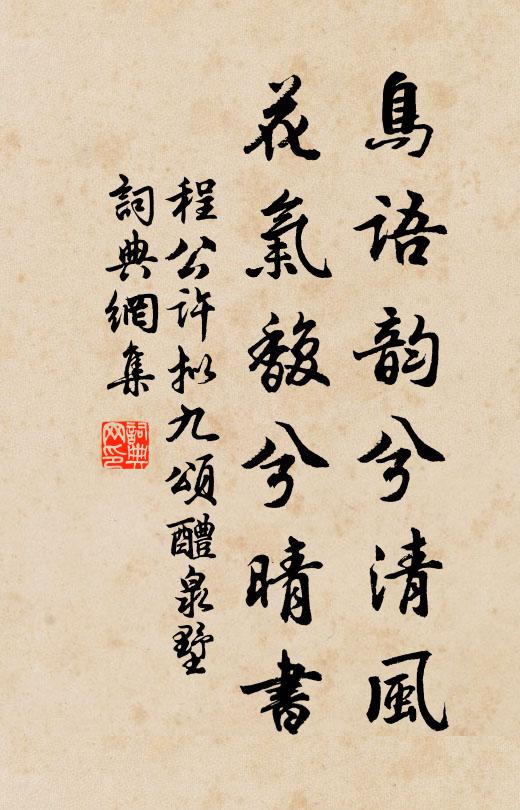 鳥語韵兮清風
花氣馥兮晴書
程公许拟九頌醴泉墅
詞典網集
詞典網印